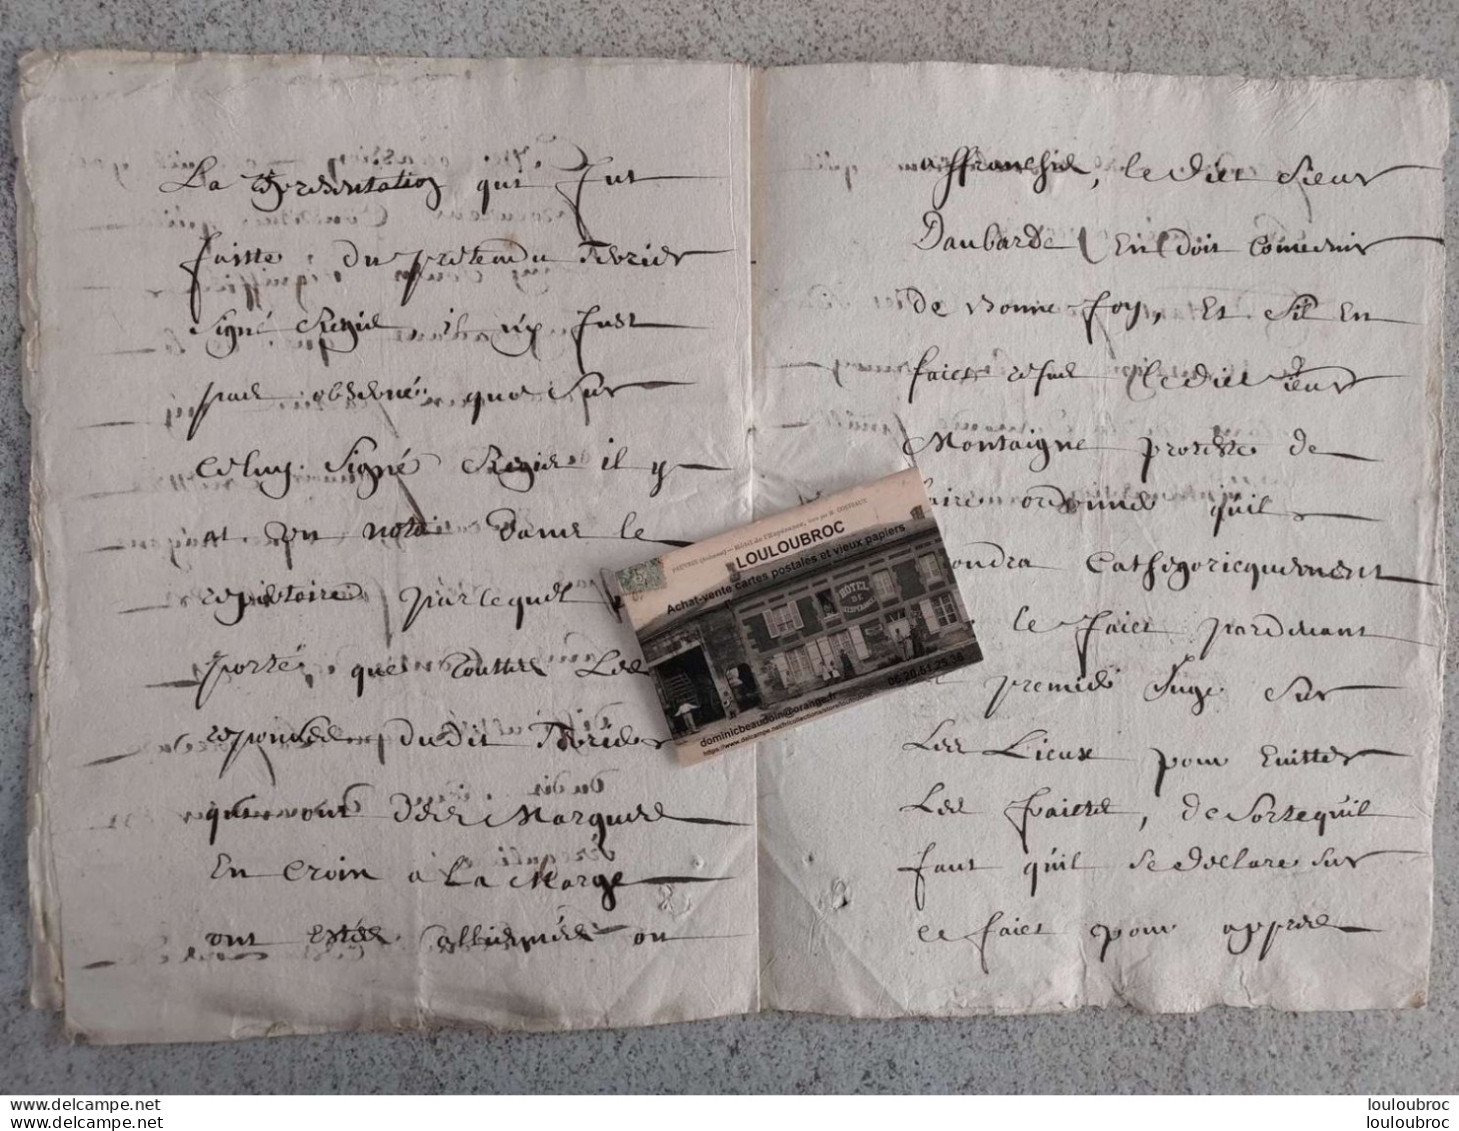 La representation qui fut
faitte du pretendu Terrier
signé Regis il n'y fust
pas observé que sur
celuy signé Regis il y
at un nota dans le
repertoire par lequel
porté que touttes Les
reponses dudit Terrier
qui sont Des Marques
En Croix a La Marge
ont estés ou
affranchis, le dict Sieur
Daubarde En doit Convenir
de Bonne foy, et Sil En
faict refus le dict Sieur
Montaigne proteste de
faire ordonné quil
Cathegoricquement
le faict pardevant
premié Juge sur
Les Lieux pour Evitter
Les fraittes, de Sorte quil
faut quil se declare sur
ce faict pour appres
LOULOUBROC
Achat-vente cartes postales et vieux papiers
HOTEL
DE
06.20.51.25.36
dominicbeaudoin@orange.fr
louloubroc
louloubroc
https://www.delcampe.net/fr/collections/store/louloubroc
louloubroc
louloubroc